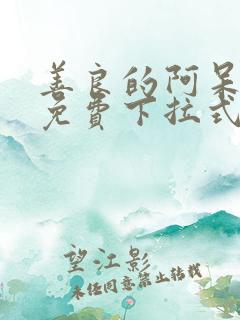 善良的阿呆
免费下拉式
望江影
未经同意禁止转载